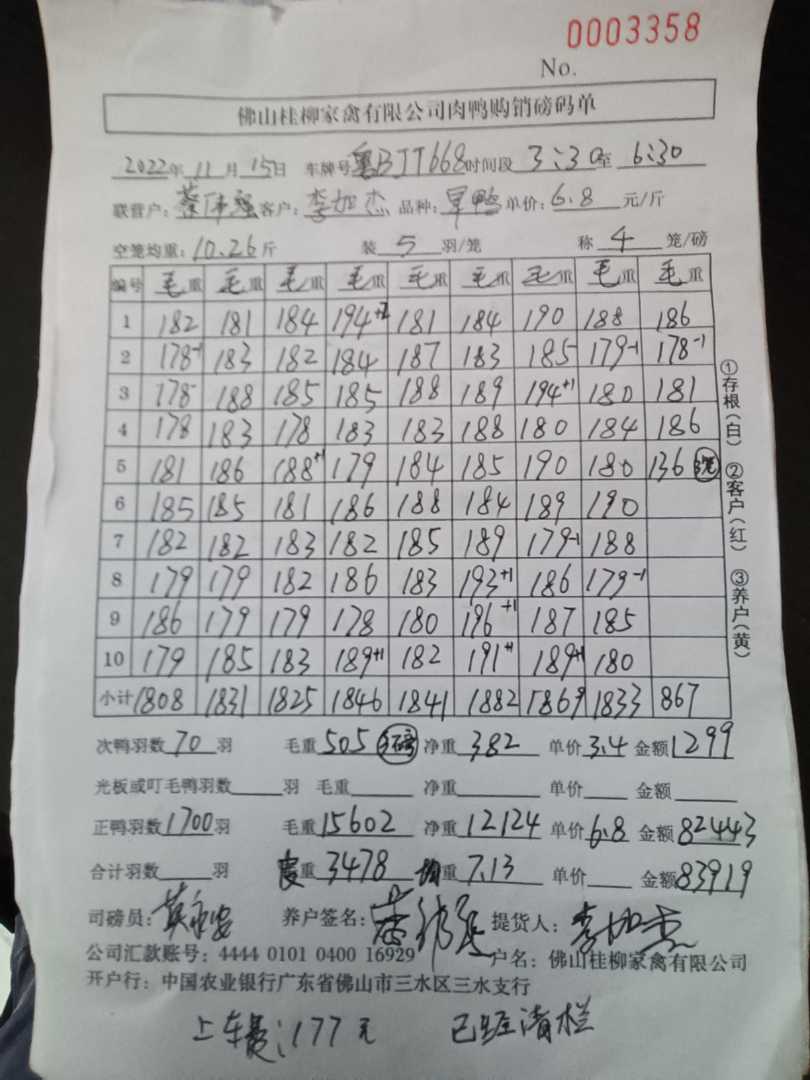 0003358
No.
佛山桂柳家禽有限公司肉鸭购销磅码单
2022年 11月 15日 车牌号 粤BJT668 时间段 3:30 至 6:30
联营户: 客户: 李旭杰 品种: 旱鸭 单价: 6.8 元/斤
空笼均重: 10.26 斤 装 5 羽/笼 称 4 笼/磅
编号 毛重 毛重 毛重 毛重 毛重 毛重 毛重 毛重 毛重
1 182 181 184 194 181 184 190 188 186
2 178-1 183 182 184 187 183 185 179-1 178-1
3 178- 188 185 185 188 189 194+1 180 181
4 178 183 178 183 183 188 180 184 186
5 181 186 188+1 179 184 185 190 180 136 3笼
6 185 185 181 186 188 184 189 190
7 182 182 183 182 185 189 179-1 188
8 179 179 182 186 183 193+1 186 179-1
9 186 179 179 178 180 196+1 187 185
10 179 185 183 189+1 182 191+1 189+1 180
小计 1808 1831 1825 1846 1841 1882 1869 1833 867
次鸭羽数 70 羽 毛重 505 3磅 净重 382 单价 3.4 金额 1299
光板或叮毛鸭羽数 羽 毛重 净重 单价 金额
正鸭羽数 1700 羽 毛重 15602 净重 12124 单价 6.8 金额 82443
合计羽数 羽 皮重 3478 均重 7.13 单价 金额 83919
司磅员: 养户签名: 提货人: 李旭杰
公司汇款账号: 4444 0101 0400 16929 户名: 佛山桂柳家禽有限公司
开户行: 中国农业银行广东省佛山市三水区三水支行
上车费: 177元 已经清栏
①存根(白) ②客户(红) ③养户(黄)